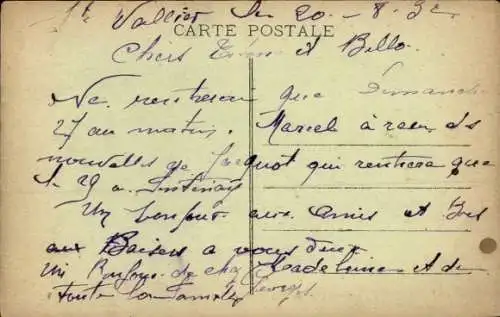 St Vallier le 20 - 8. 32
CARTE POSTALE
Chers et Bello.
Ne rentreron que Dimanche
27 au matin. Marcel à reçu des
nouvelles de Jacquot qui rentrera que
le 29 a
Un bonjour aux Amis et
aux Baisers a vous deux
Un Bonjour de chez Madeleine et de
toute la famille Georges